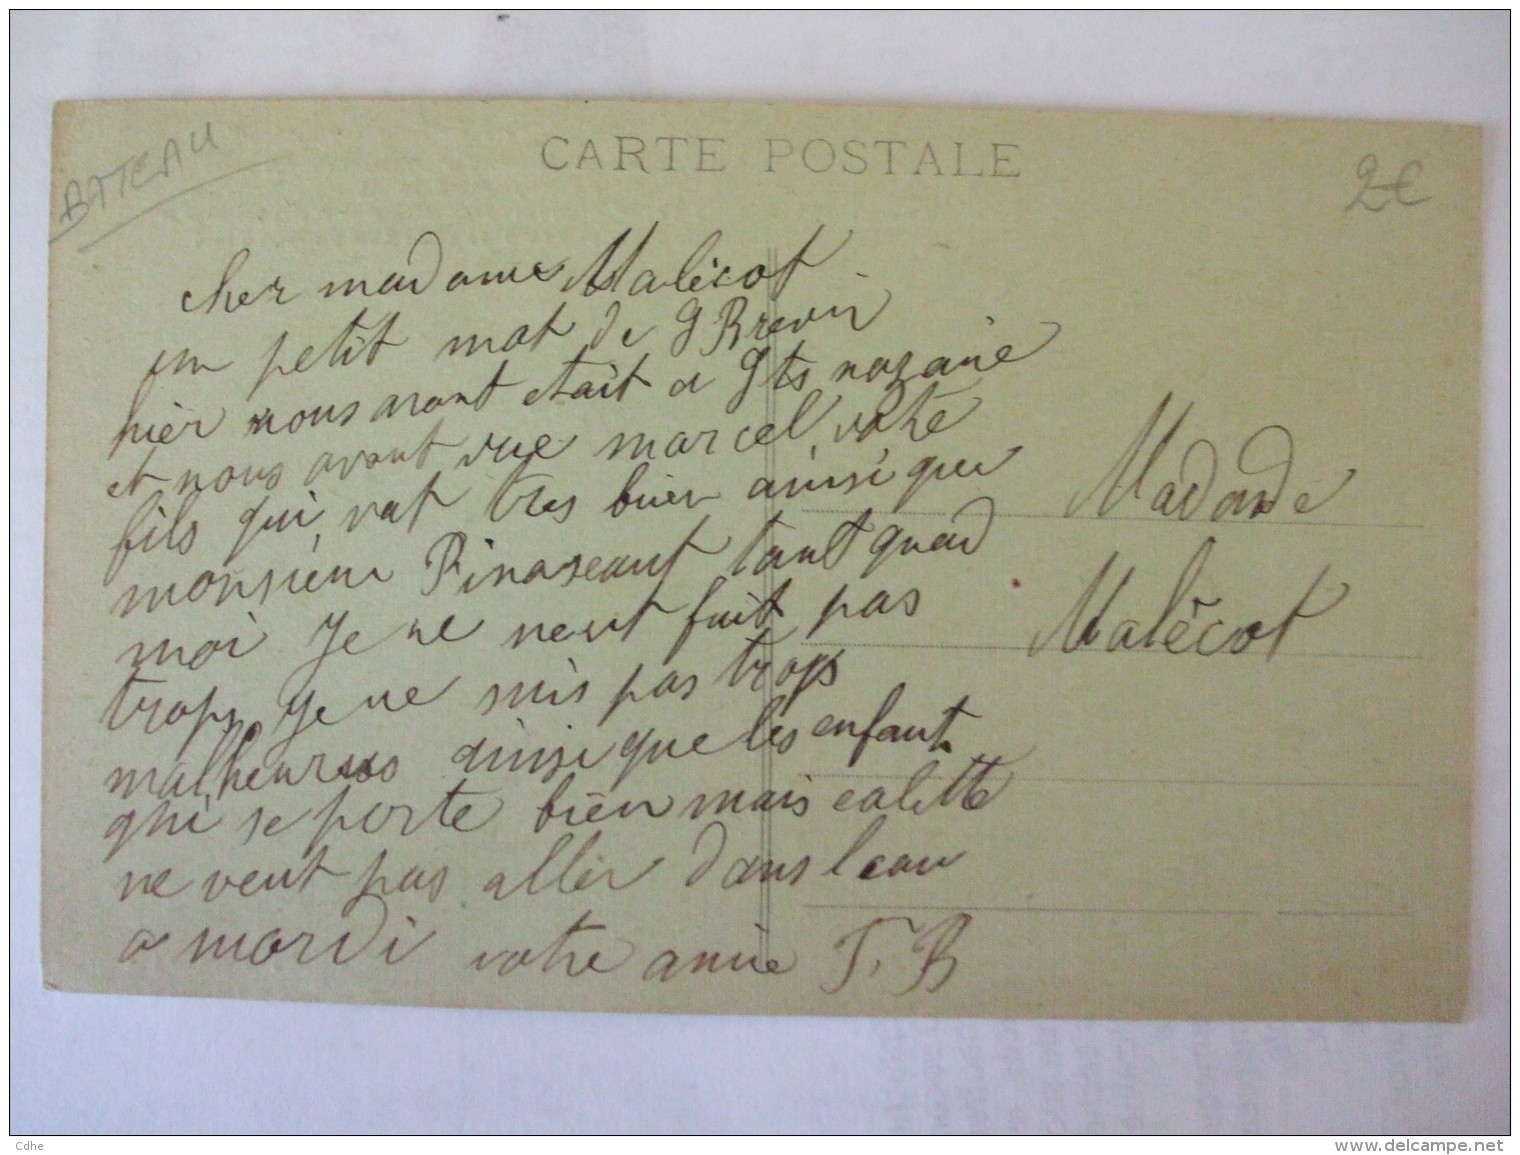 BATEAU
CARTE POSTALE
2€
cher madame Malécot
un petit mot de S Brevin
hier nous avont etait a Sts nazaire
et nous avont vue marcel votre
fils qui vat tres bien ainsi que
monsieur tant quad
moi Je ne neut fait pas
trop, Je ne suis pas trops
malheureus ainsi que les enfant
qui se porte bien mais colette
ne veut pas aller dans leau
a mardi votre amie J. B
Madame
Malécot
Cdhe
www.delcampe.net